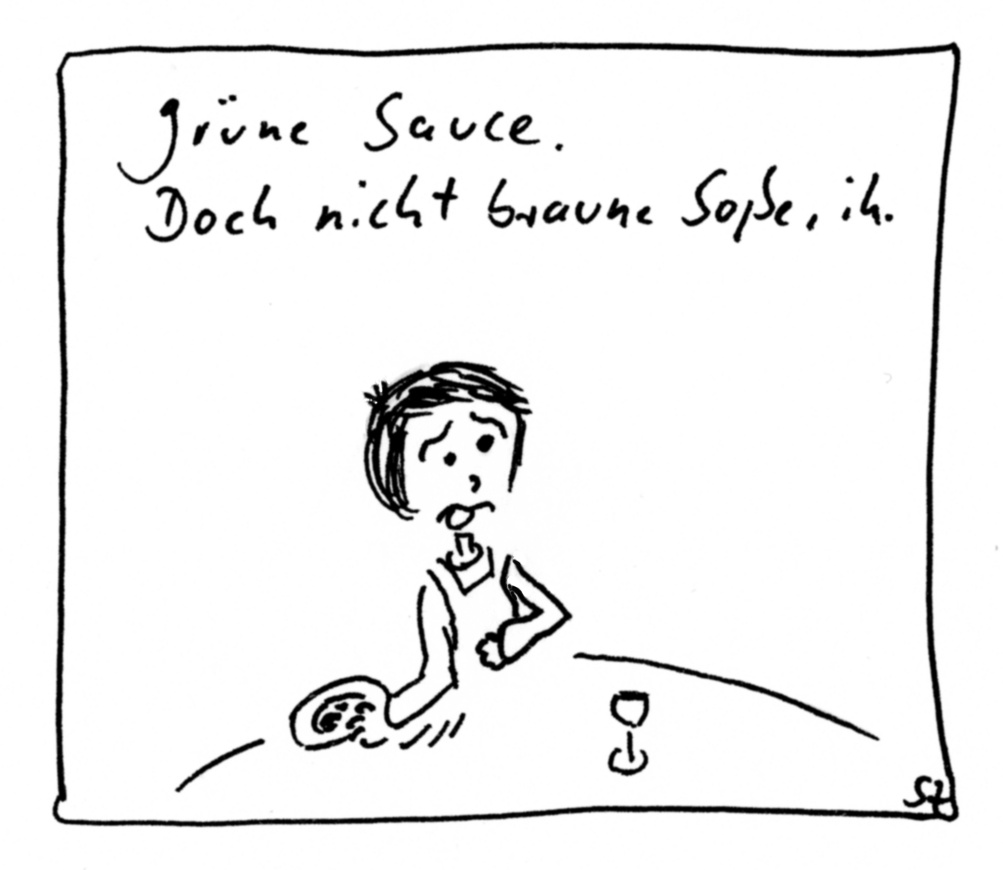 grüne Sauce.
Doch nicht braune Soße, ih.
SZ